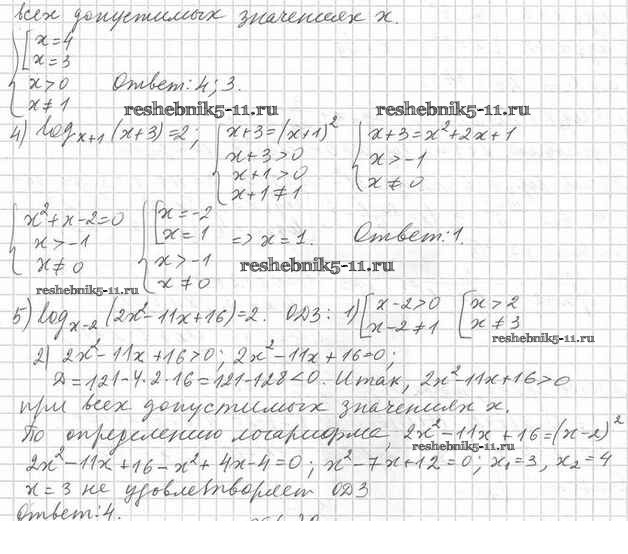 всех допустимых значениях x.
{ [ x=4
x=3
x>0 Ответ: 4; 3.
x≠1
reshebnik5-11.ru reshebnik5-11.ru
4) log_{x+1} (x+3)=2; { x+3=(x+1)² { x+3=x²+2x+1
x+3>0 x>-1
x+1>0 x≠0
x+1≠1
{ x²+x-2=0 { [ x=-2
x>-1 x=1 => x=1. Ответ: 1.
x≠0 x>-1
x≠0
reshebnik5-11.ru
reshebnik5-11.ru
5) log_{x-2} (2x²-11x+16)=2. ОДЗ: 1) [ x-2>0 [ x>2
x-2≠1 x≠3
reshebnik5-11.ru
2) 2x²-11x+16>0; 2x²-11x+16=0;
Д=121-4·2·16=121-128<0. Итак, 2x²-11x+16>0
при всех допустимых значениях x.
По определению логарифма, 2x²-11x+16=(x-2)²
reshebnik5-11.ru
2x²-11x+16-x²+4x-4=0; x²-7x+12=0; x₁=3, x₂=4
x=3 не удовлетворяет ОДЗ
Ответ: 4.